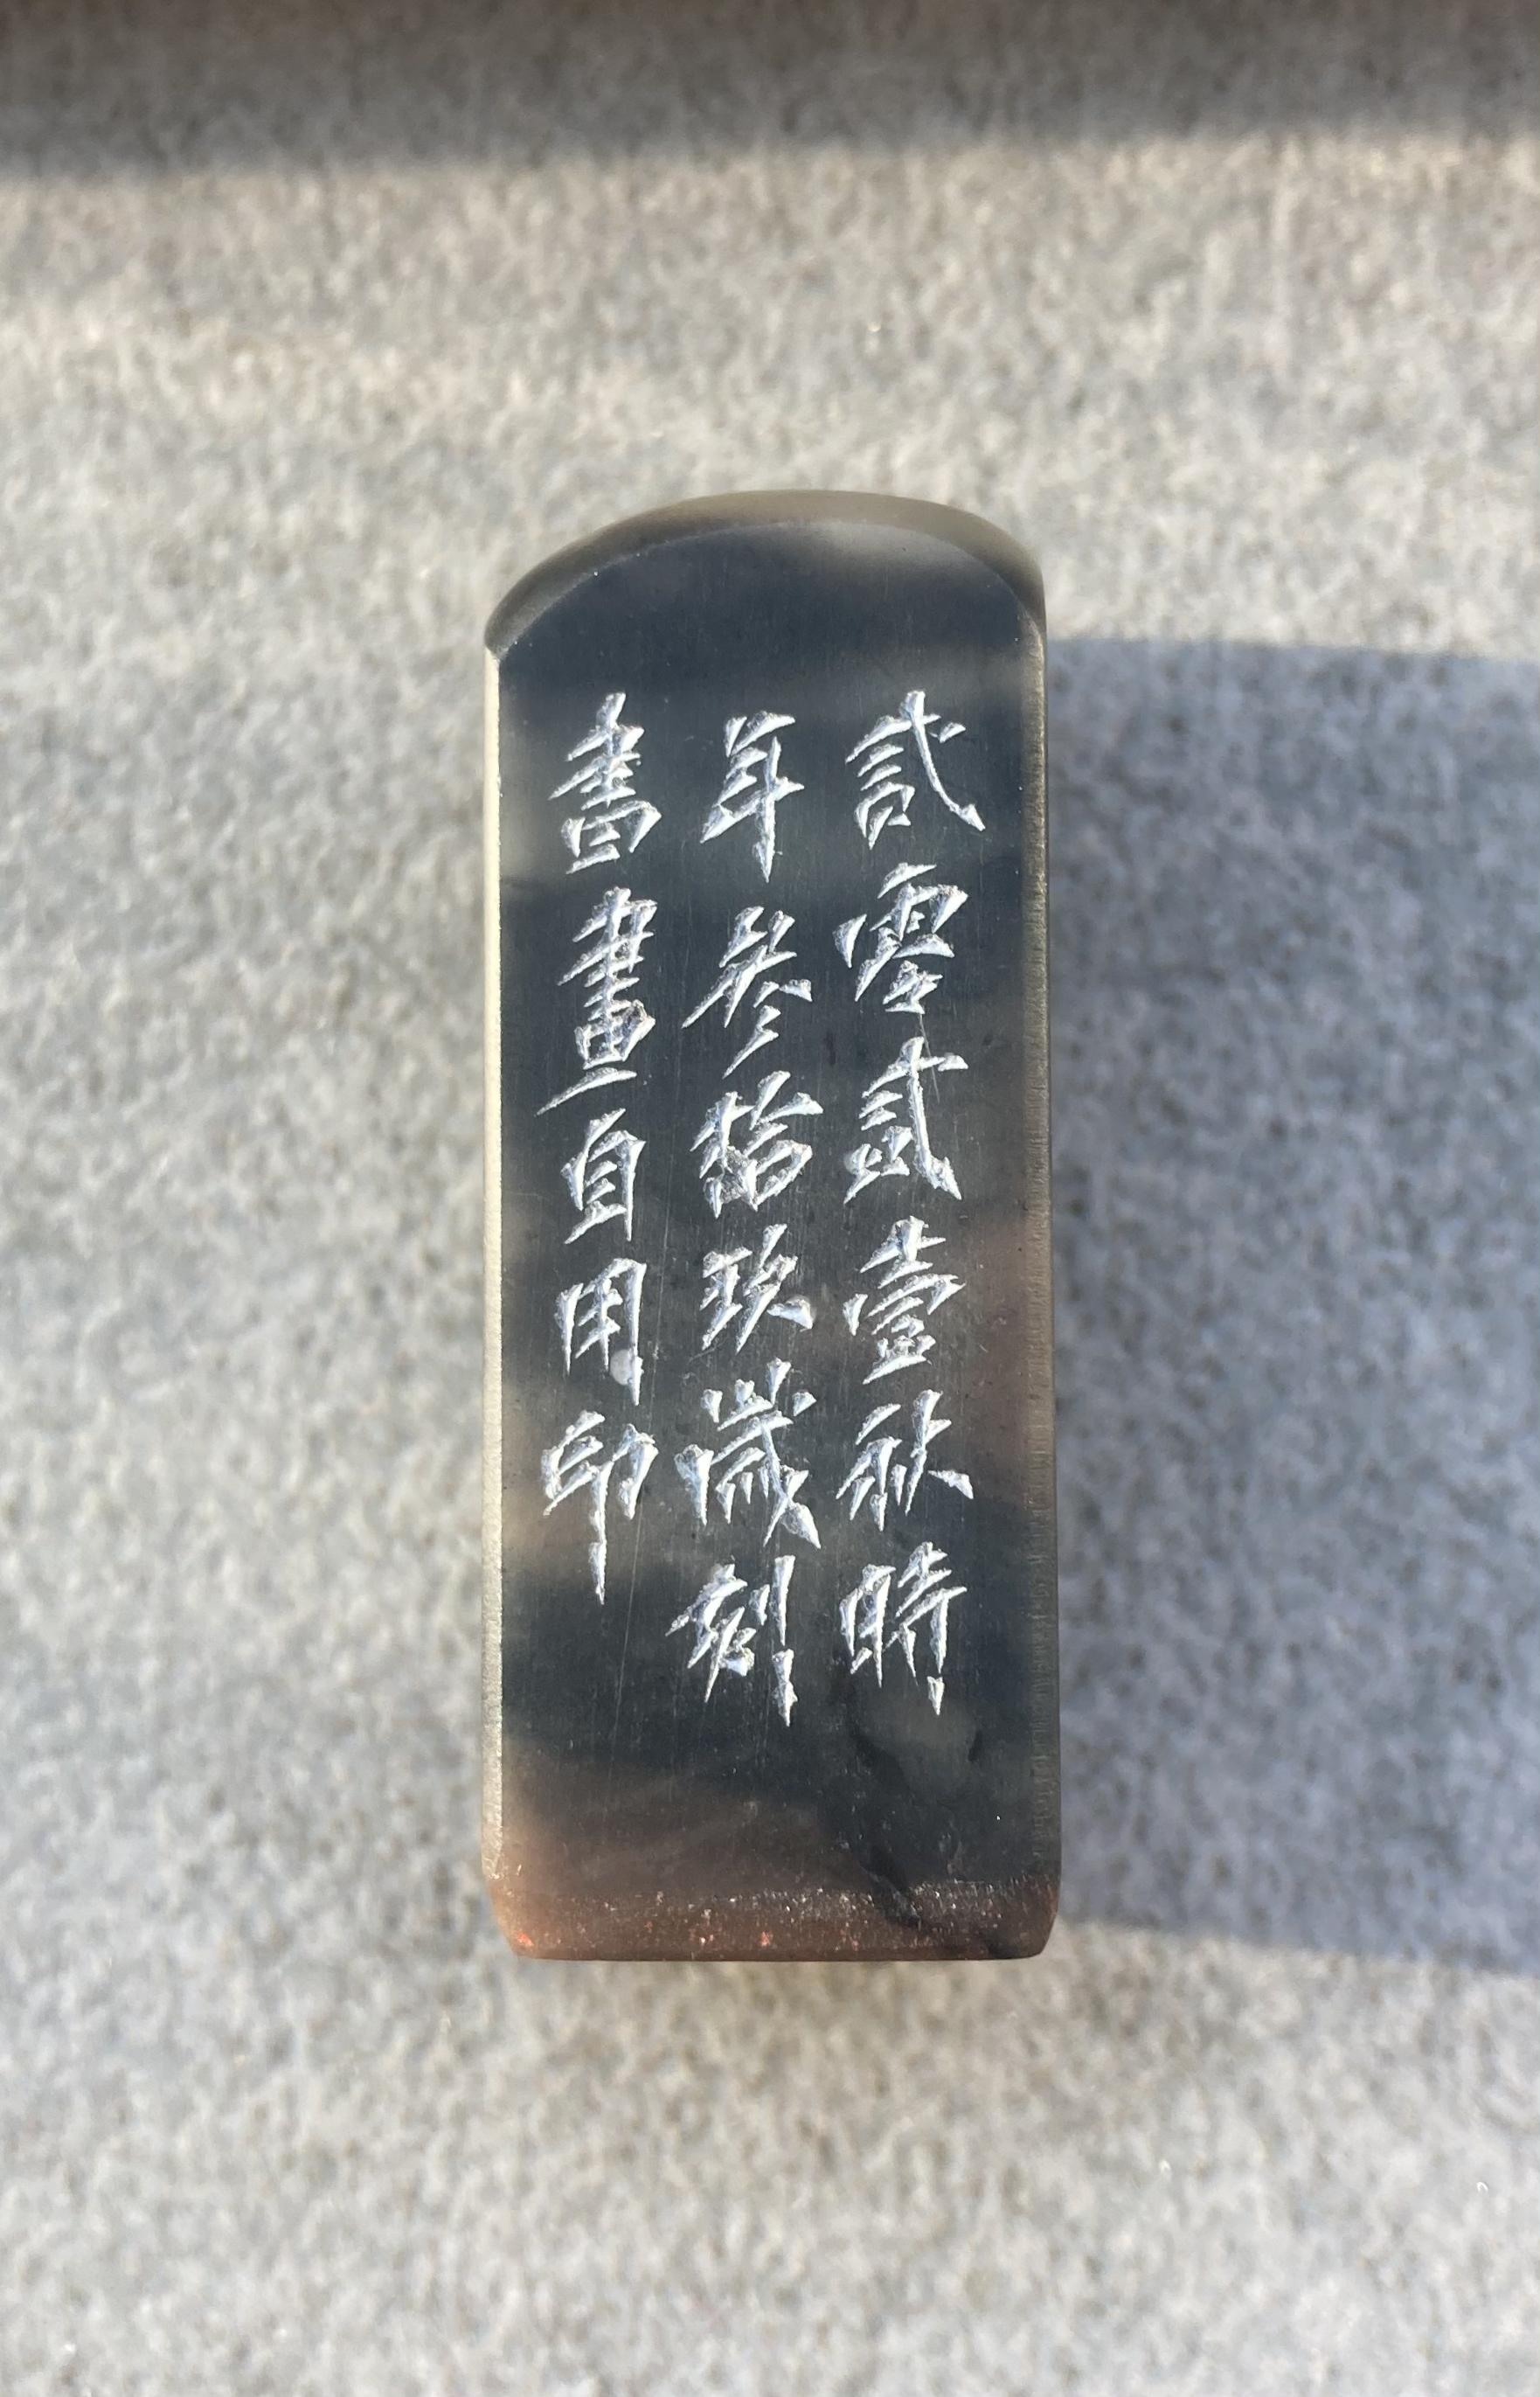 貳零貳壹秋時
年參拾玖歲刻
書畫自用印